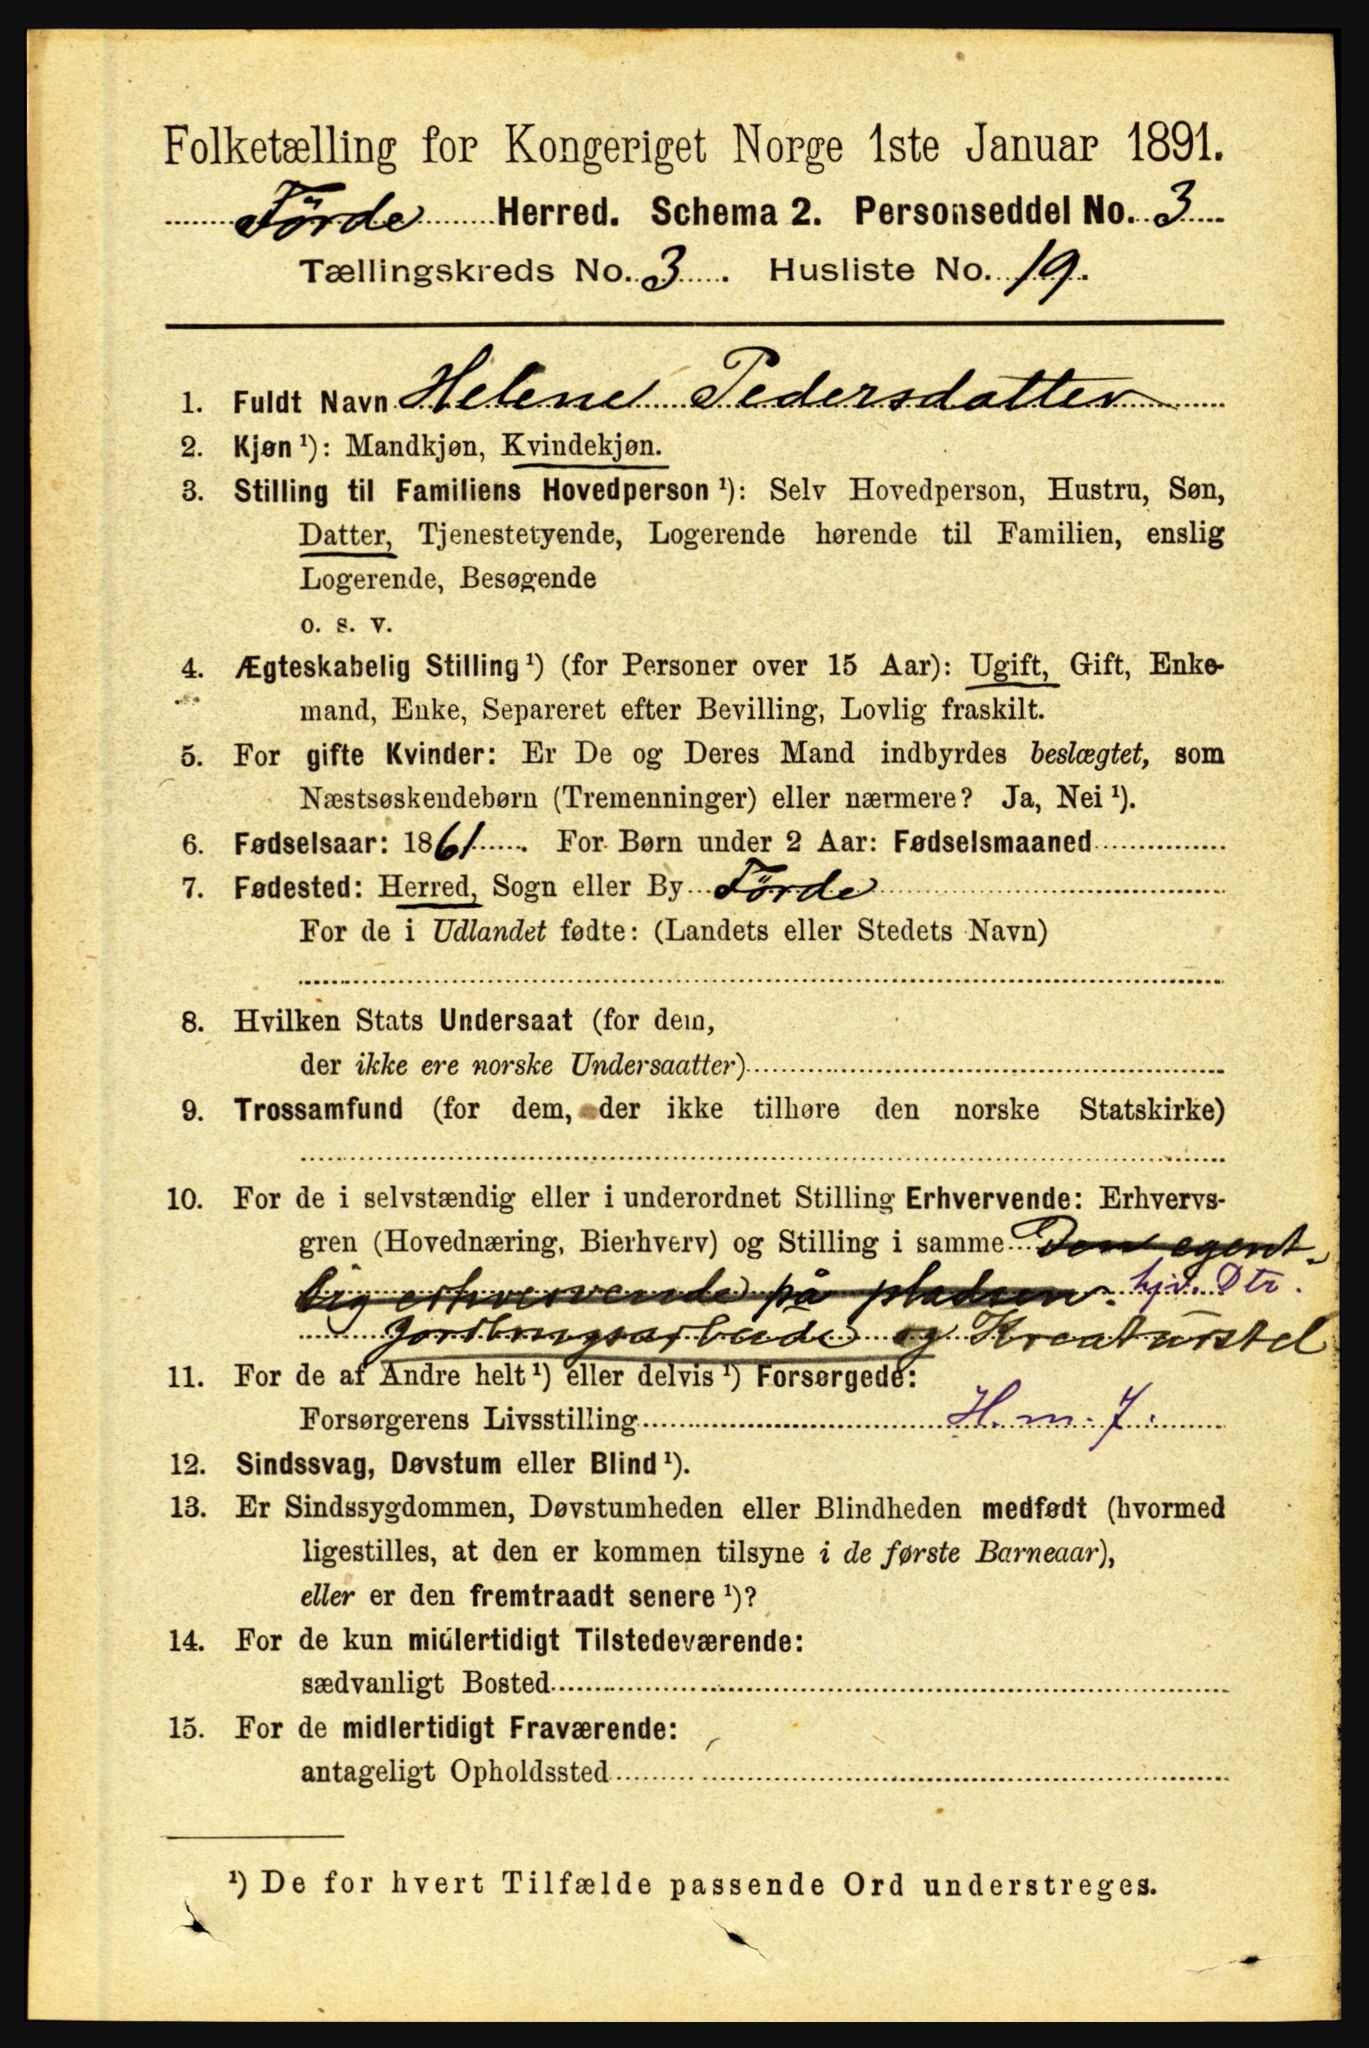 Folketælling for Kongeriget Norge 1ste Januar 1891.
Förde Herred. Schema 2. Personseddel No. 3
Tællingskreds No. 3. Husliste No. 19.
1. Fuldt Navn Helene Pedersdatter
2. Kjøn ¹): Mandkjøn, Kvindekjøn.
3. Stilling til Familiens Hovedperson ¹): Selv Hovedperson, Hustru, Søn,
Datter, Tjenestetyende, Logerende hørende til Familien, enslig
Logerende, Besøgende
o. s. v.
4. Ægteskabelig Stilling ¹) (for Personer over 15 Aar): Ugift, Gift, Enke-
mand, Enke, Separeret efter Bevilling, Lovlig fraskilt.
5. For gifte Kvinder: Er De og Deres Mand indbyrdes beslægtet, som
Næstsøskendebørn (Tremenninger) eller nærmere? Ja, Nei ¹).
6. Fødselsaar: 1861. For Børn under 2 Aar: Fødselsmaaned
7. Fødested: Herred, Sogn eller By Förde
For de i Udlandet fødte: (Landets eller Stedets Navn)
8. Hvilken Stats Undersaat (for dem,
der ikke ere norske Undersaatter)
9. Trossamfund (for dem, der ikke tilhøre den norske Statskirke)
10. For de i selvstændig eller i underordnet Stilling Erhvervende: Erhvervs-
gren (Hovednæring, Bierhverv) og Stilling i samme Den egent-
lig erhvervende på pladsen. hjv. Dtr.
Jordbrugsarbeide og Kreaturstel
11. For de af Andre helt ¹) eller delvis ¹) Forsørgede:
Forsørgerens Livsstilling H. m. J.
12. Sindssvag, Døvstum eller Blind ¹).
13. Er Sindssygdommen, Døvstumheden eller Blindheden medfødt (hvormed
ligestilles, at den er kommen tilsyne i de første Barneaar),
eller er den fremtraadt senere ¹)?
14. For de kun midlertidigt Tilstedeværende:
sædvanligt Bosted
15. For de midlertidigt Fraværende:
antageligt Opholdssted
¹) De for hvert Tilfælde passende Ord understreges.